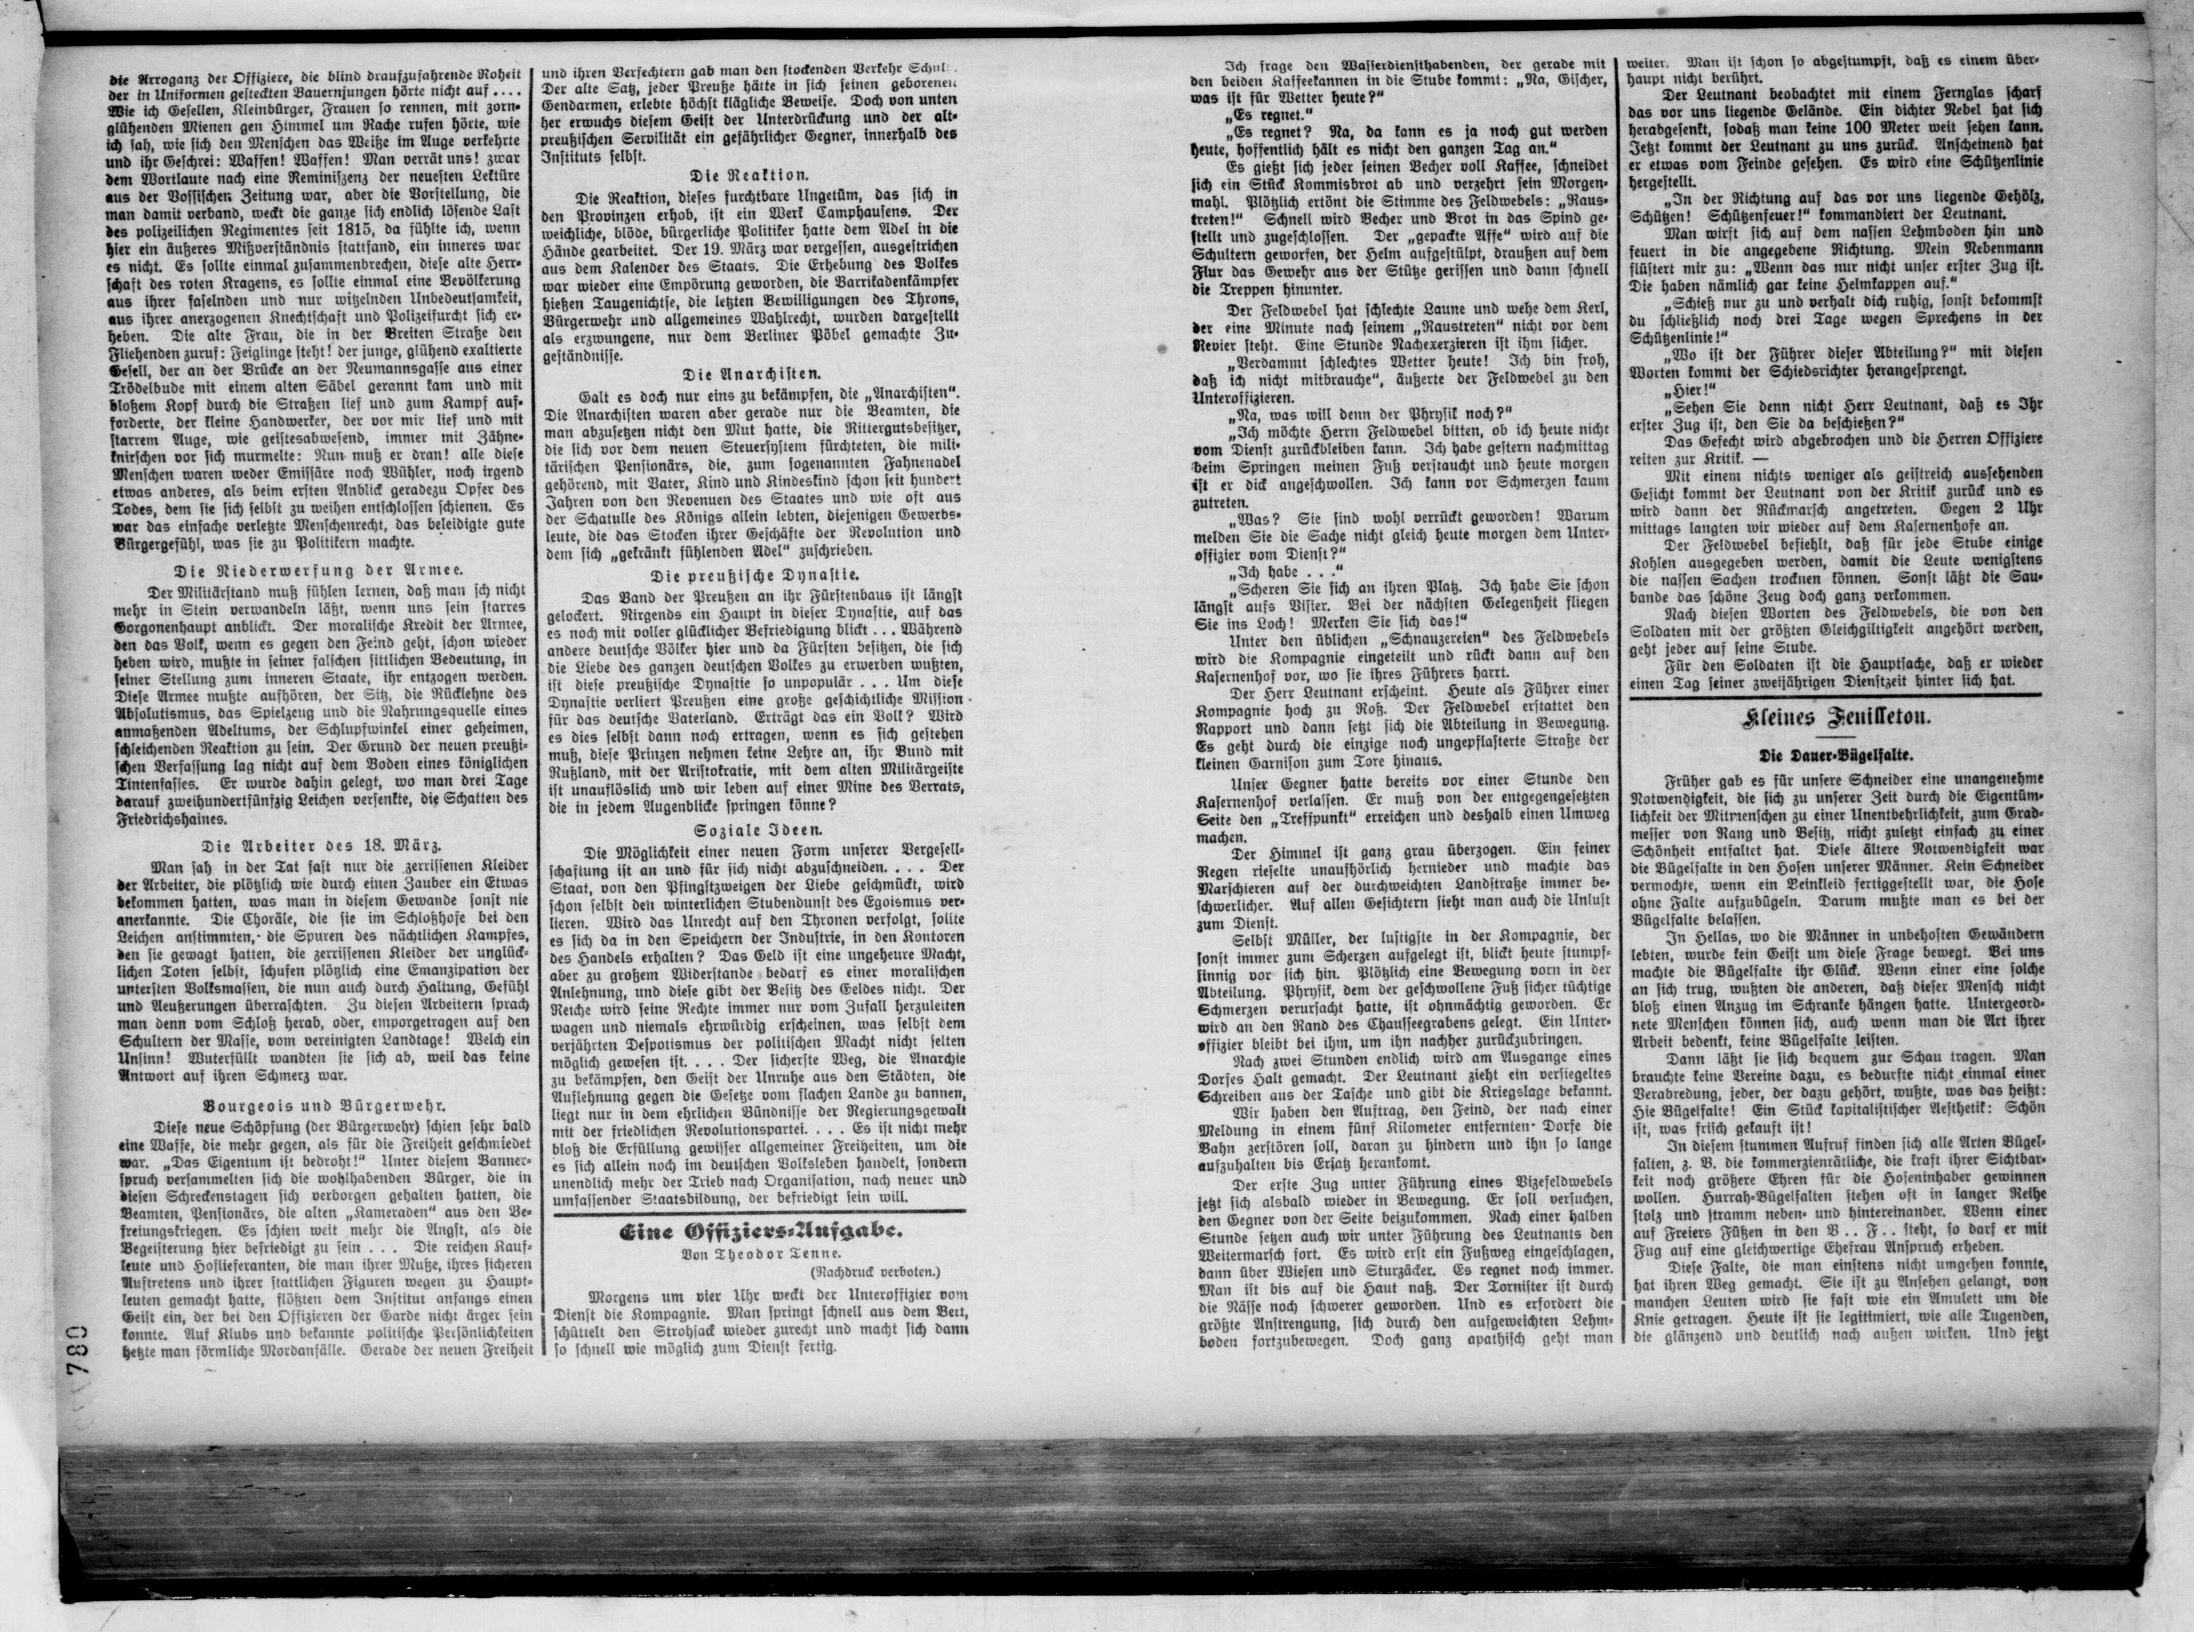 die Arroganz der Offiziere, die blind draufzufahrende Roheit
der in Uniformen gesteckten Bauernjungen hörte nicht auf ....
Wie ich Gesellen, Kleinbürger, Frauen so rennen, mit zorn-
glühenden Mienen gen Himmel um Rache rufen hörte, wie
ich sah, wie sich den Menschen das Weiße im Auge verkehrte
und ihr Geschrei: Waffen! Waffen! Man verrät uns! zwar
dem Wortlaute nach eine Reminiszenz der neuesten Lektüre
aus der Vossischen Zeitung war, aber die Vorstellung, die
man damit verband, weckt die ganze sich endlich lösende Last
des polizeilichen Regimentes seit 1815, da fühlte ich, wenn
hier ein äußeres Mißverständnis stattfand, ein inneres war
es nicht. Es sollte einmal zusammenbrechen, diese alte Herr-
schaft des roten Kragens, es sollte einmal eine Bevölkerung
aus ihrer faselnden und nur witzelnden Unbedeutsamkeit,
aus ihrer anerzogenen Knechtschaft und Polizeifurcht sich er-
heben. Die alte Frau, die in der Breiten Straße den
Fliehenden zuruf: Feiglinge steht! der junge, glühend exaltierte
Gesell, der an der Brücke an der Neumannsgasse aus einer
Trödelbude mit einem alten Säbel gerannt kam und mit
bloßem Kopf durch die Straßen lief und zum Kampf auf-
forderte, der kleine Handwerker, der vor mir lief und mit
starrem Auge, wie geistesabwesend, immer mit Zähne-
knirschen vor sich murmelte: Nun muß er dran! alle diese
Menschen waren weder Emissäre noch Wühler, noch irgend
etwas anderes, als beim ersten Anblick geradezu Opfer des
Todes, dem sie sich selbst zu weihen entschlossen schienen. Es
war das einfache verletzte Menschenrecht, das beleidigte gute
Bürgergefühl, was sie zu Politikern machte.
Die Niederwerfung der Armee.
Der Militärstand muß fühlen lernen, daß man sich nicht
mehr in Stein verwandeln läßt, wenn uns sein starres
Gorgonenhaupt anblickt. Der moralische Kredit der Armee,
den das Volk, wenn es gegen den Feind geht, schon wieder
heben wird, mußte in seiner falschen sittlichen Bedeutung, in
seiner Stellung zum inneren Staate, ihr entzogen werden.
Diese Armee mußte aufhören, der Sitz, die Rücklehne des
Absolutismus, das Spielzeug und die Nahrungsquelle eines
anmaßenden Adeltums, der Schlupfwinkel einer geheimen,
schleichenden Reaktion zu sein. Der Grund der neuen preußi-
schen Verfassung lag nicht auf dem Boden eines königlichen
Tintenfasses. Er wurde dahin gelegt, wo man drei Tage
darauf zweihundertfünfzig Leichen versenkte, die Schatten des
Friedrichshaines.
Die Arbeiter des 18. März.
Man sah in der Tat fast nur die zerrissenen Kleider
der Arbeiter, die plötzlich wie durch einen Zauber ein Etwas
bekommen hatten, was man in diesem Gewande sonst nie
anerkannte. Die Choräle, die sie im Schloßhofe bei den
Leichen anstimmten, die Spuren des nächtlichen Kampfes,
den sie gewagt hatten, die zerrissenen Kleider der unglück-
lichen Toten selbst, schufen plötzlich eine Emanzipation der
untersten Volksmassen, die nun auch durch Haltung, Gefühl
und Aeußerungen überraschten. Zu diesen Arbeitern sprach
man denn vom Schloß herab, oder, emporgetragen auf den
Schultern der Masse, vom vereinigten Landtage! Welch ein
Unsinn! Wuterfüllt wandten sie sich ab, weil das keine
Antwort auf ihren Schmerz war.
Bourgeois und Bürgerwehr.
Diese neue Schöpfung (der Bürgerwehr) schien sehr bald
eine Waffe, die mehr gegen, als für die Freiheit geschmiedet
war. „Das Eigentum ist bedroht!“ Unter diesem Banner-
spruch versammelten sich die wohlhabenden Bürger, die in
diesen Schreckenstagen sich verborgen gehalten hatten, die
Beamten, Pensionärs, die alten „Kameraden“ aus den Be-
freiungskriegen. Es schien weit mehr die Angst, als die
Begeisterung hier befriedigt zu sein . . . Die reichen Kauf-
leute und Hoflieferanten, die man ihrer Muße, ihres sicheren
Auftretens und ihrer stattlichen Figuren wegen zu Haupt-
leuten gemacht hatte, flößten dem Institut anfangs einen
Geist ein, der bei den Offizieren der Garde nicht ärger sein
konnte. Auf Klubs und bekannte politische Persönlichkeiten
hetzte man förmliche Mordanfälle. Gerade der neuen Freiheit
und ihren Verfechtern gab man den stockenden Verkehr Schul
Der alte Satz, jeder Preuße hätte in sich seinen geborenen
Gendarmen, erlebte höchst klägliche Beweise. Doch von unten
her erwuchs diesem Geist der Unterdrückung und der alt-
preußischen Servilität ein gefährlicher Gegner, innerhalb des
Instituts selbst.
Die Reaktion.
Die Reaktion, dieses furchtbare Ungetüm, das sich in
den Provinzen erhob, ist ein Werk Camphausens. Der
weichliche, blöde, bürgerliche Politiker hatte dem Adel in die
Hände gearbeitet. Der 19. März war vergessen, ausgestrichen
aus dem Kalender des Staats. Die Erhebung des Volkes
war wieder eine Empörung geworden, die Barrikadenkämpfer
hießen Taugenichtse, die letzten Bewilligungen des Throns,
Bürgerwehr und allgemeines Wahlrecht, wurden dargestellt
als erzwungene, nur dem Berliner Pöbel gemachte Zu-
geständnisse.
Die Anarchisten.
Galt es doch nur eins zu bekämpfen, die „Anarchisten“.
Die Anarchisten waren aber gerade nur die Beamten, die
man abzusetzen nicht den Mut hatte, die Rittergutsbesitzer,
die sich vor dem neuen Steuersystem fürchteten, die mili-
tärischen Pensionärs, die, zum sogenannten Fahnenadel
gehörend, mit Vater, Kind und Kindeskind schon seit hundert
Jahren von den Revenuen des Staates und wie oft aus
der Schatulle des Königs allein lebten, diejenigen Gewerbs-
leute, die das Stocken ihrer Geschäfte der Revolution und
dem sich „gekränkt fühlenden Adel“ zuschrieben.
Die preußische Dynastie.
Das Band der Preußen an ihr Fürstenhaus ist längst
gelockert. Nirgends ein Haupt in dieser Dynastie, auf das
es noch mit voller glücklicher Befriedigung blickt . . . Während
andere deutsche Völker hier und da Fürsten besitzen, die sich
die Liebe des ganzen deutschen Volkes zu erwerben wußten,
ist diese preußische Dynastie so unpopulär . . . Um diese
Dynastie verliert Preußen eine große geschichtliche Mission
für das deutsche Vaterland. Erträgt das ein Volk? Wird
es dies selbst dann noch ertragen, wenn es sich gestehen
muß, diese Prinzen nehmen keine Lehre an, ihr Bund mit
Rußland, mit der Aristokratie, mit dem alten Militärgeiste
ist unauflöslich und wir leben auf einer Mine des Verrats,
die in jedem Augenblicke springen könne?
Soziale Ideen.
Die Möglichkeit einer neuen Form unserer Vergesell-
schaftung ist an und für sich nicht abzuschneiden. . . . Der
Staat, von den Pfingstzweigen der Liebe geschmückt, wird
schon selbst den winterlichen Stubendunst des Egoismus ver-
lieren. Wird das Unrecht auf den Thronen verfolgt, sollte
es sich da in den Speichern der Industrie, in den Kontoren
des Handels erhalten? Das Geld ist eine ungeheure Macht,
aber zu großem Widerstande bedarf es einer moralischen
Anlehnung, und diese gibt der Besitz des Geldes nicht. Der
Reiche wird seine Rechte immer nur vom Zufall herzuleiten
wagen und niemals ehrwürdig erscheinen, was selbst dem
verjährten Despotismus der politischen Macht nicht selten
möglich gewesen ist. . . . Der sicherste Weg, die Anarchie
zu bekämpfen, den Geist der Unruhe aus den Städten, die
Auflehnung gegen die Gesetze vom flachen Lande zu bannen,
liegt nur in dem ehrlichen Bündnisse der Regierungsgewalt
mit der friedlichen Revolutionspartei. . . . Es ist nicht mehr
bloß die Erfüllung gewisser allgemeiner Freiheiten, um die
es sich allein noch im deutschen Volksleben handelt, sondern
unendlich mehr der Trieb nach Organisation, nach neuer und
umfassender Staatsbildung, der befriedigt sein will.
Eine Offiziers-Aufgabe.
Von Theodor Tenne.
(Nachdruck verboten.)
Morgens um vier Uhr weckt der Unteroffizier vom
Dienst die Kompagnie. Man springt schnell aus dem Bett,
schüttelt den Strohsack wieder zurecht und macht sich dann
so schnell wie möglich zum Dienst fertig.
Ich frage den Wasserdiensthabenden, der gerade mit
den beiden Kaffeekannen in die Stube kommt: „Na, Gischer,
was ist für Wetter heute?“
„Es regnet.“
„Es regnet? Na, da kann es ja noch gut werden
heute, hoffentlich hält es nicht den ganzen Tag an.“
Es gießt sich jeder seinen Becher voll Kaffee, schneidet
sich ein Stück Kommisbrot ab und verzehrt sein Morgen-
mahl. Plötzlich ertönt die Stimme des Feldwebels: „Raus-
treten!“ Schnell wird Becher und Brot in das Spind ge-
stellt und zugeschlossen. Der „gepackte Affe“ wird auf die
Schultern geworfen, der Helm aufgestülpt, draußen auf dem
Flur das Gewehr aus der Stütze gerissen und dann schnell
die Treppen hinunter.
Der Feldwebel hat schlechte Laune und wehe dem Kerl,
der eine Minute nach seinem „Raustreten“ nicht vor dem
Revier steht. Eine Stunde Nachexerzieren ist ihm sicher.
„Verdammt schlechtes Wetter heute! Ich bin froh,
daß ich nicht mitbrauche“, äußerte der Feldwebel zu den
Unteroffizieren.
„Na, was will denn der Phrysik noch?“
„Ich möchte Herrn Feldwebel bitten, ob ich heute nicht
vom Dienst zurückbleiben kann. Ich habe gestern nachmittag
beim Springen meinen Fuß verstaucht und heute morgen
ist er dick angeschwollen. Ich kann vor Schmerzen kaum
zutreten.
„Was? Sie sind wohl verrückt geworden! Warum
melden Sie die Sache nicht gleich heute morgen dem Unter-
offizier vom Dienst?“
„Ich habe . . .“
„Scheren Sie sich an ihren Platz. Ich habe Sie schon
längst aufs Visier. Bei der nächsten Gelegenheit fliegen
Sie ins Loch! Merken Sie sich das!“
Unter den üblichen „Schnauzereien“ des Feldwebels
wird die Kompagnie eingeteilt und rückt dann auf den
Kasernenhof vor, wo sie ihres Führers harrt.
Der Herr Leutnant erscheint. Heute als Führer einer
Kompagnie hoch zu Roß. Der Feldwebel erstattet den
Rapport und dann setzt sich die Abteilung in Bewegung.
Es geht durch die einzige noch ungepflasterte Straße der
kleinen Garnison zum Tore hinaus.
Unser Gegner hatte bereits vor einer Stunde den
Kasernenhof verlassen. Er muß von der entgegengesetzten
Seite den „Treffpunkt“ erreichen und deshalb einen Umweg
machen.
Der Himmel ist ganz grau überzogen. Ein feiner
Regen rieselte unaufhörlich hernieder und machte das
Marschieren auf der durchweichten Landstraße immer be-
schwerlicher. Auf allen Gesichtern sieht man auch die Unlust
zum Dienst.
Selbst Müller, der lustigste in der Kompagnie, der
sonst immer zum Scherzen aufgelegt ist, blickt heute stumpf-
sinnig vor sich hin. Plötzlich eine Bewegung vorn in der
Abteilung. Phrysik, dem der geschwollene Fuß sicher tüchtige
Schmerzen verursacht hatte, ist ohnmächtig geworden. Er
wird an den Rand des Chausseegrabens gelegt. Ein Unter-
offizier bleibt bei ihm, um ihn nachher zurückzubringen.
Nach zwei Stunden endlich wird am Ausgange eines
Dorfes Halt gemacht. Der Leutnant zieht ein versiegeltes
Schreiben aus der Tasche und gibt die Kriegslage bekannt.
Wir haben den Auftrag, den Feind, der nach einer
Meldung in einem fünf Kilometer entfernten Dorfe die
Bahn zerstören soll, daran zu hindern und ihn so lange
aufzuhalten bis Ersatz herankomt.
Der erste Zug unter Führung eines Vizefeldwebels
jetzt sich alsbald wieder in Bewegung. Er soll versuchen,
den Gegner von der Seite beizukommen. Nach einer halben
Stunde setzen auch wir unter Führung des Leutnants den
Weitermarsch fort. Es wird erst ein Fußweg eingeschlagen,
dann über Wiesen und Sturzäcker. Es regnet noch immer.
Man ist bis auf die Haut naß. Der Tornister ist durch
die Nässe noch schwerer geworden. Und es erfordert die
größte Anstrengung, sich durch den aufgeweichten Lehm-
boden fortzubewegen. Doch ganz apathisch geht man
weiter. Man ist schon so abgestumpft, daß es einem über-
haupt nicht berührt.
Der Leutnant beobachtet mit einem Fernglas scharf
das vor uns liegende Gelände. Ein dichter Nebel hat sich
herabgesenkt, sodaß man keine 100 Meter weit sehen kann.
Jetzt kommt der Leutnant zu uns zurück. Anscheinend hat
er etwas vom Feinde gesehen. Es wird eine Schützenlinie
hergestellt.
„In der Richtung auf das vor uns liegende Gehölz,
Schützen! Schützenfeuer!“ kommandiert der Leutnant.
Man wirft sich auf dem nassen Lehmboden hin und
feuert in die angegebene Richtung. Mein Nebenmann
flüstert mir zu: „Wenn das nur nicht unser erster Zug ist.
Die haben nämlich gar keine Helmkappen auf.“
„Schieß nur zu und verhalt dich ruhig, sonst bekommst
du schließlich noch drei Tage wegen Sprechens in der
Schützenlinie!“
„Wo ist der Führer dieser Abteilung?“ mit diesen
Worten kommt der Schiedsrichter herangesprengt.
„Hier!“
„Sehen Sie denn nicht Herr Leutnant, daß es Ihr
erster Zug ist, den Sie da beschießen?“
Das Gefecht wird abgebrochen und die Herren Offiziere
reiten zur Kritik. —
Mit einem nichts weniger als geistreich aussehenden
Gesicht kommt der Leutnant von der Kritik zurück und es
wird dann der Rückmarsch angetreten. Gegen 2 Uhr
mittags langten wir wieder auf dem Kasernenhofe an.
Der Feldwebel befiehlt, daß für jede Stube einige
Kohlen ausgegeben werden, damit die Leute wenigstens
die nassen Sachen trocknen können. Sonst läßt die Sau-
bande das schöne Zeug doch ganz verkommen.
Nach diesen Worten des Feldwebels, die von den
Soldaten mit der größten Gleichgiltigkeit angehört werden,
geht jeder auf seine Stube.
Für den Soldaten ist die Hauptsache, daß er wieder
einen Tag seiner zweijährigen Dienstzeit hinter sich hat.
Kleines Feuilleton.
Die Dauer-Bügelfalte.
Früher gab es für unsere Schneider eine unangenehme
Notwendigkeit, die sich zu unserer Zeit durch die Eigentüm-
lichkeit der Mitmenschen zu einer Unentbehrlichkeit, zum Grad-
messer von Rang und Besitz, nicht zuletzt einfach zu einer
Schönheit entfaltet hat. Diese ältere Notwendigkeit war
die Bügelfalte in den Hosen unserer Männer. Kein Schneider
vermochte, wenn ein Beinkleid fertiggestellt war, die Hose
ohne Falte aufzubügeln. Darum mußte man es bei der
Bügelfalte belassen.
In Hellas, wo die Männer in unbehosten Gewändern
lebten, wurde kein Geist um diese Frage bewegt. Bei uns
machte die Bügelfalte ihr Glück. Wenn einer eine solche
an sich trug, wußten die anderen, daß dieser Mensch nicht
bloß einen Anzug im Schranke hängen hatte. Untergeord-
nete Menschen können sich, auch wenn man die Art ihrer
Arbeit bedenkt, keine Bügelfalte leisten.
Dann läßt sie sich bequem zur Schau tragen. Man
brauchte keine Vereine dazu, es bedurfte nicht einmal einer
Verabredung, jeder, der dazu gehört, wußte, was das heißt:
Hie Bügelfalte! Ein Stück kapitalistischer Aesthetik: Schön
ist, was frisch gekauft ist!
In diesem stummen Aufruf finden sich alle Arten Bügel-
falten, z. B. die kommerzienrätliche, die kraft ihrer Sichtbar-
keit noch größere Ehren für die Hoseninhaber gewinnen
wollen. Hurrah-Bügelfalten stehen oft in langer Reihe
stolz und stramm neben- und hintereinander. Wenn einer
auf Freiers Füßen in den B . . F . . steht, so darf er mit
Fug auf eine gleichwertige Ehefrau Anspruch erheben.
Diese Falte, die man einstens nicht umgehen konnte,
hat ihren Weg gemacht. Sie ist zu Ansehen gelangt, von
manchen Leuten wird sie fast wie ein Amulett um die
Knie getragen. Heute ist sie legitimiert, wie alle Tugenden,
die glänzend und deutlich nach außen wirken. Und jetzt
780